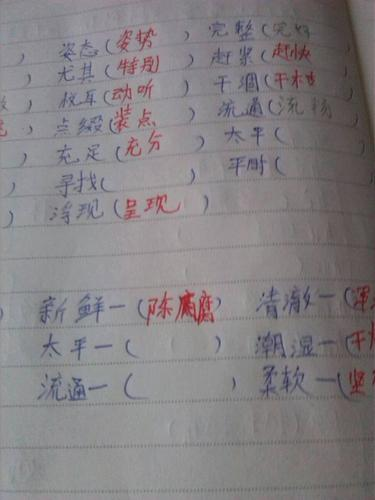 姿态(姿势) 完整(完好
尤其(特别) 赶紧(赶快
悦耳(动听) 干涸(干枯
点缀(装点) 流通(流畅
充足(充分) 太平(
寻找( ) 平时(
浮现(呈现)
新鲜一(陈腐) 清澈一(浑
太平一( ) 潮湿一(干
流通一( ) 柔软一(坚